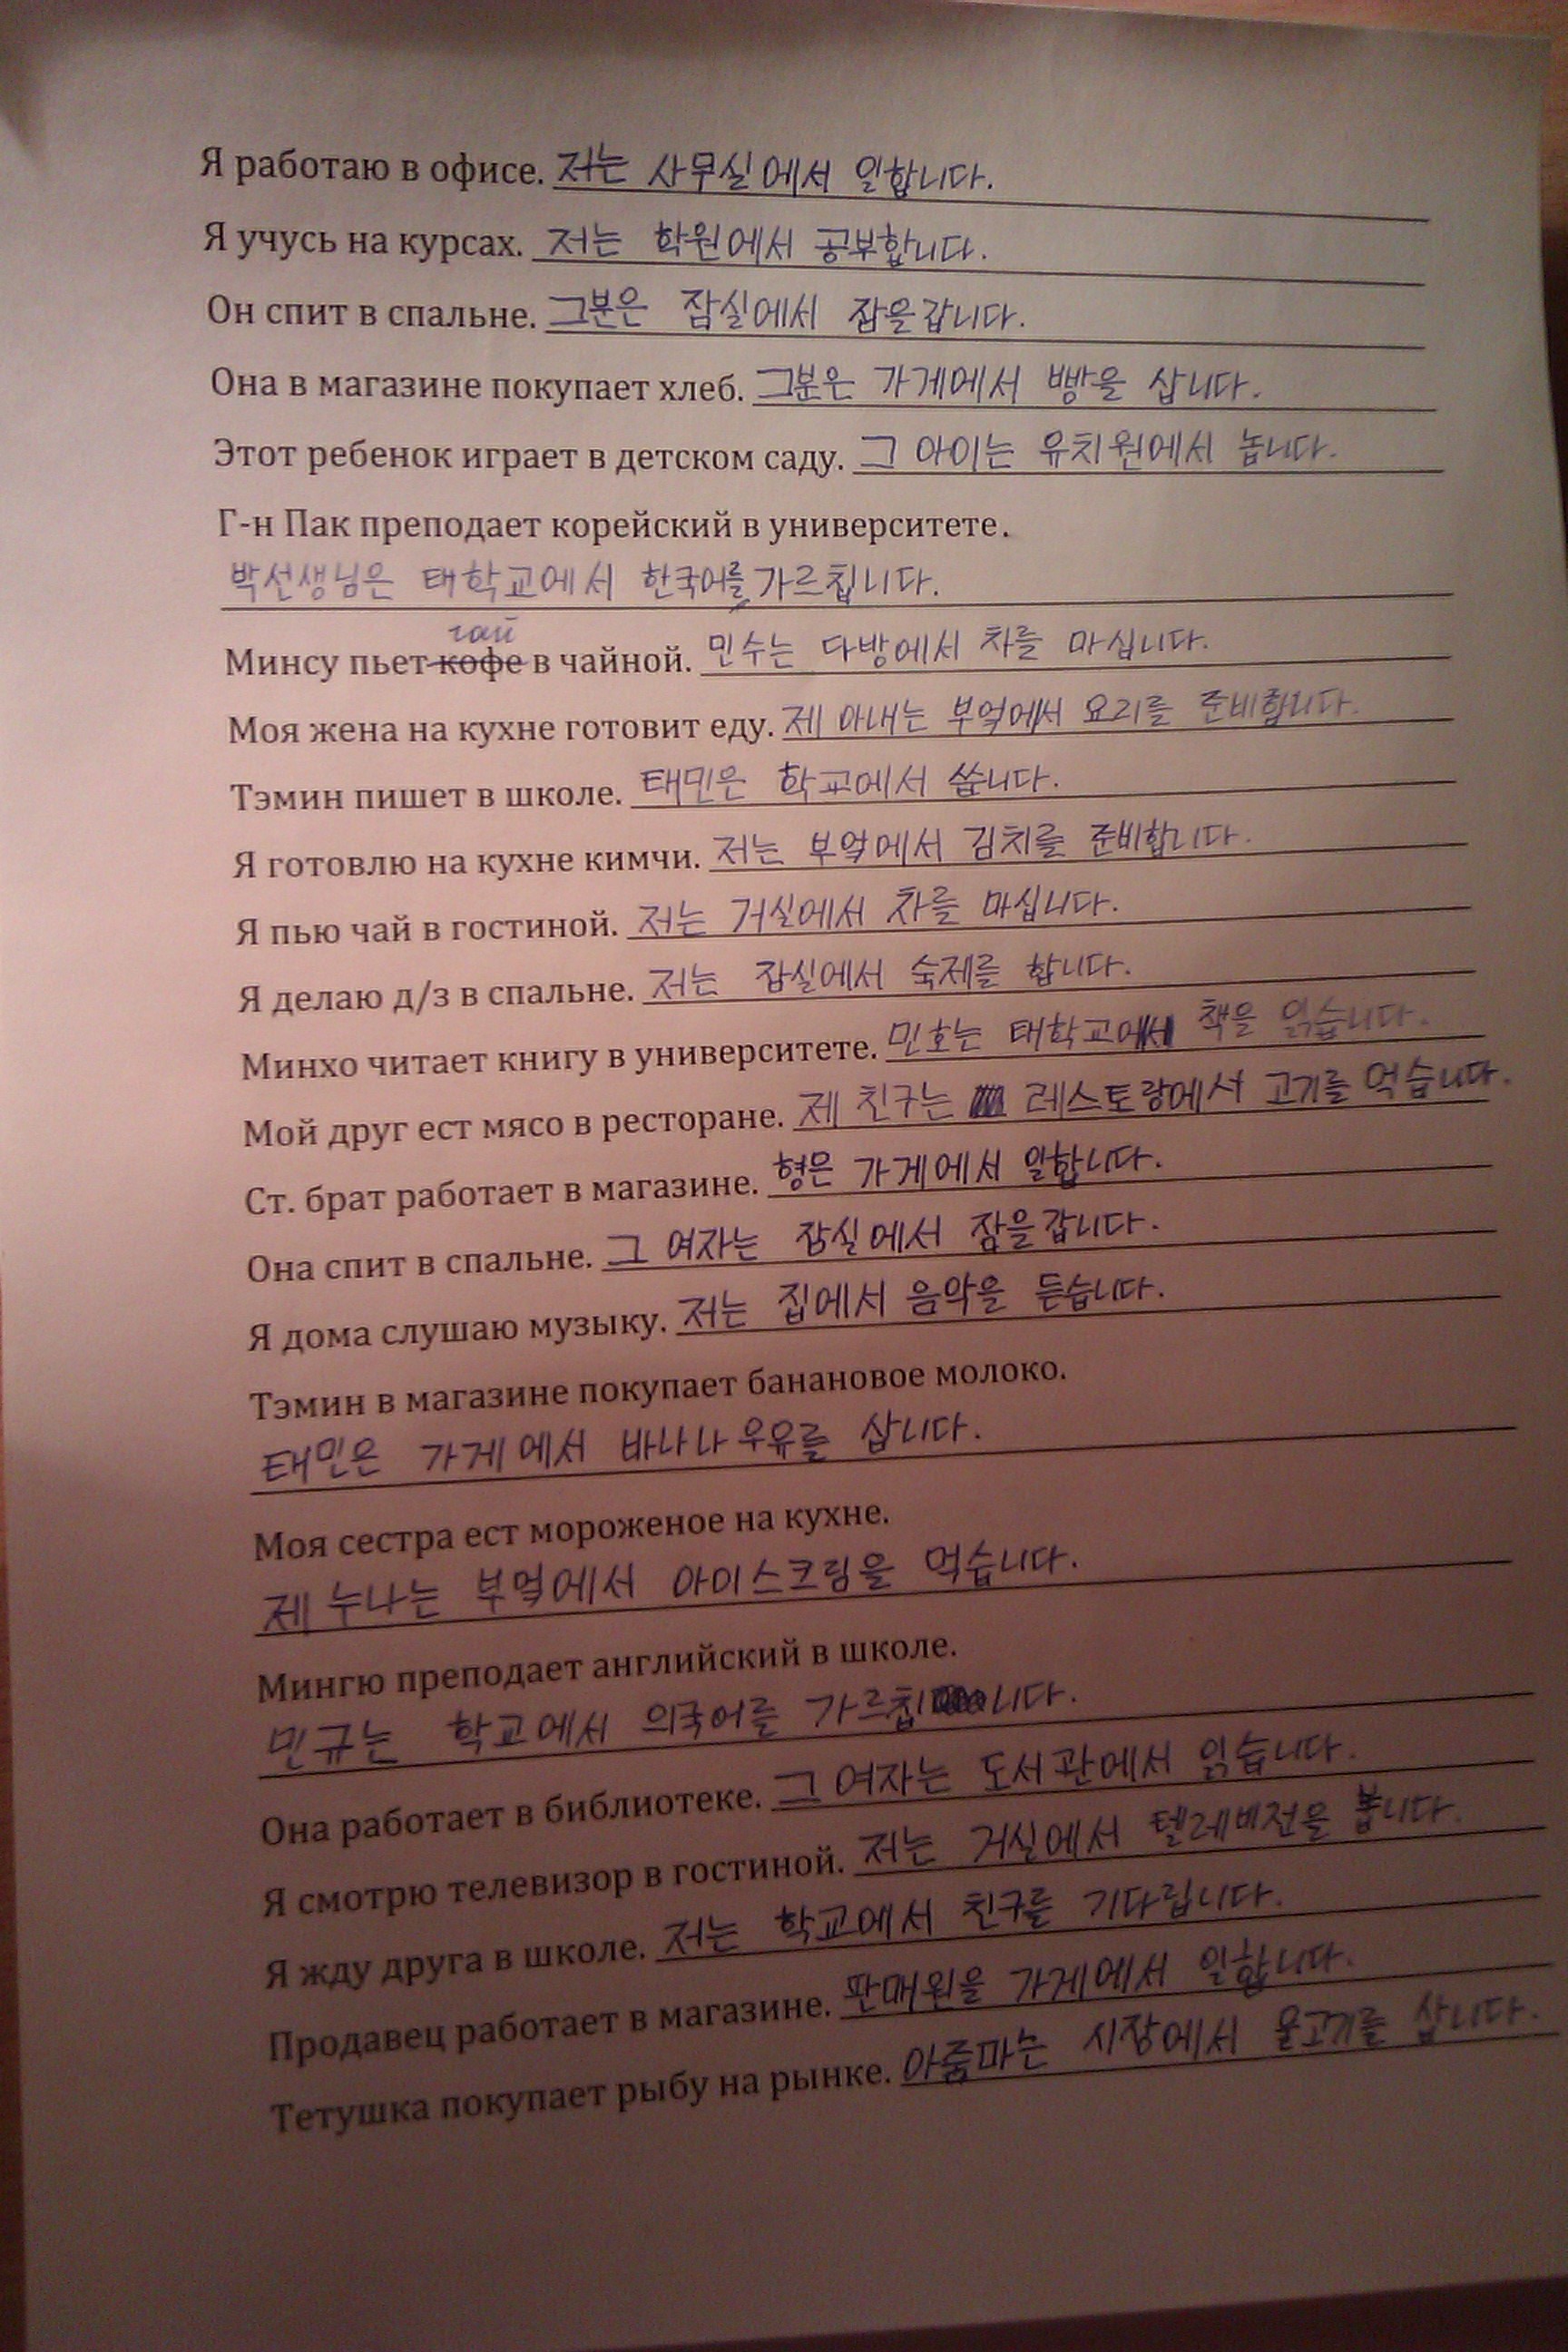 Я работаю в офисе. 저는 사무실에서 일합니다.
Я учусь на курсах. 저는 학원에서 공부합니다.
Он спит в спальне. 그분은 잠실에서 잡을 갑니다.
Она в магазине покупает хлеб. 그분은 가게에서 빵을 삽니다.
Этот ребенок играет в детском саду. 그 아이는 유치원에서 놉니다.
Г-н Пак преподает корейский в университете.
박선생님은 태학교에서 한국어를 가르칩니다.
чай
Минсу пьет кофе в чайной. 민수는 다방에서 차를 마십니다.
Моя жена на кухне готовит еду. 제 아내는 부엌에서 요리를 준비합니다.
Тэмин пишет в школе. 태민은 학교에서 씁니다.
Я готовлю на кухне кимчи. 저는 부엌에서 김치를 준비합니다.
Я пью чай в гостиной. 저는 거실에서 차를 마십니다.
Я делаю д/з в спальне. 저는 잠실에서 숙제를 합니다.
Минхо читает книгу в университете. 민호는 태학교에서 책을 읽습니다.
Мой друг ест мясо в ресторане. 제 친구는 레스토랑에서 고기를 먹습니다.
Ст. брат работает в магазине. 형은 가게에서 일합니다.
Она спит в спальне. 그 여자는 잠실에서 잠을 갑니다.
Я дома слушаю музыку. 저는 집에서 음악을 듣습니다.
Тэмин в магазине покупает банановое молоко.
태민은 가게에서 바나나 우유를 삽니다.
Моя сестра ест мороженое на кухне.
제 누나는 부엌에서 아이스크림을 먹습니다.
Мингю преподает английский в школе.
민규는 학교에서 의국어를 가르칩니다.
Она работает в библиотеке. 그 여자는 도서관에서 읽습니다.
Я смотрю телевизор в гостиной. 저는 거실에서 텔레비전을 봅니다.
Я жду друга в школе. 저는 학교에서 친구를 기다립니다.
Продавец работает в магазине. 판매원을 가게에서 일합니다.
Тетушка покупает рыбу на рынке. 아줌마는 시장에서 물고기를 삽니다.